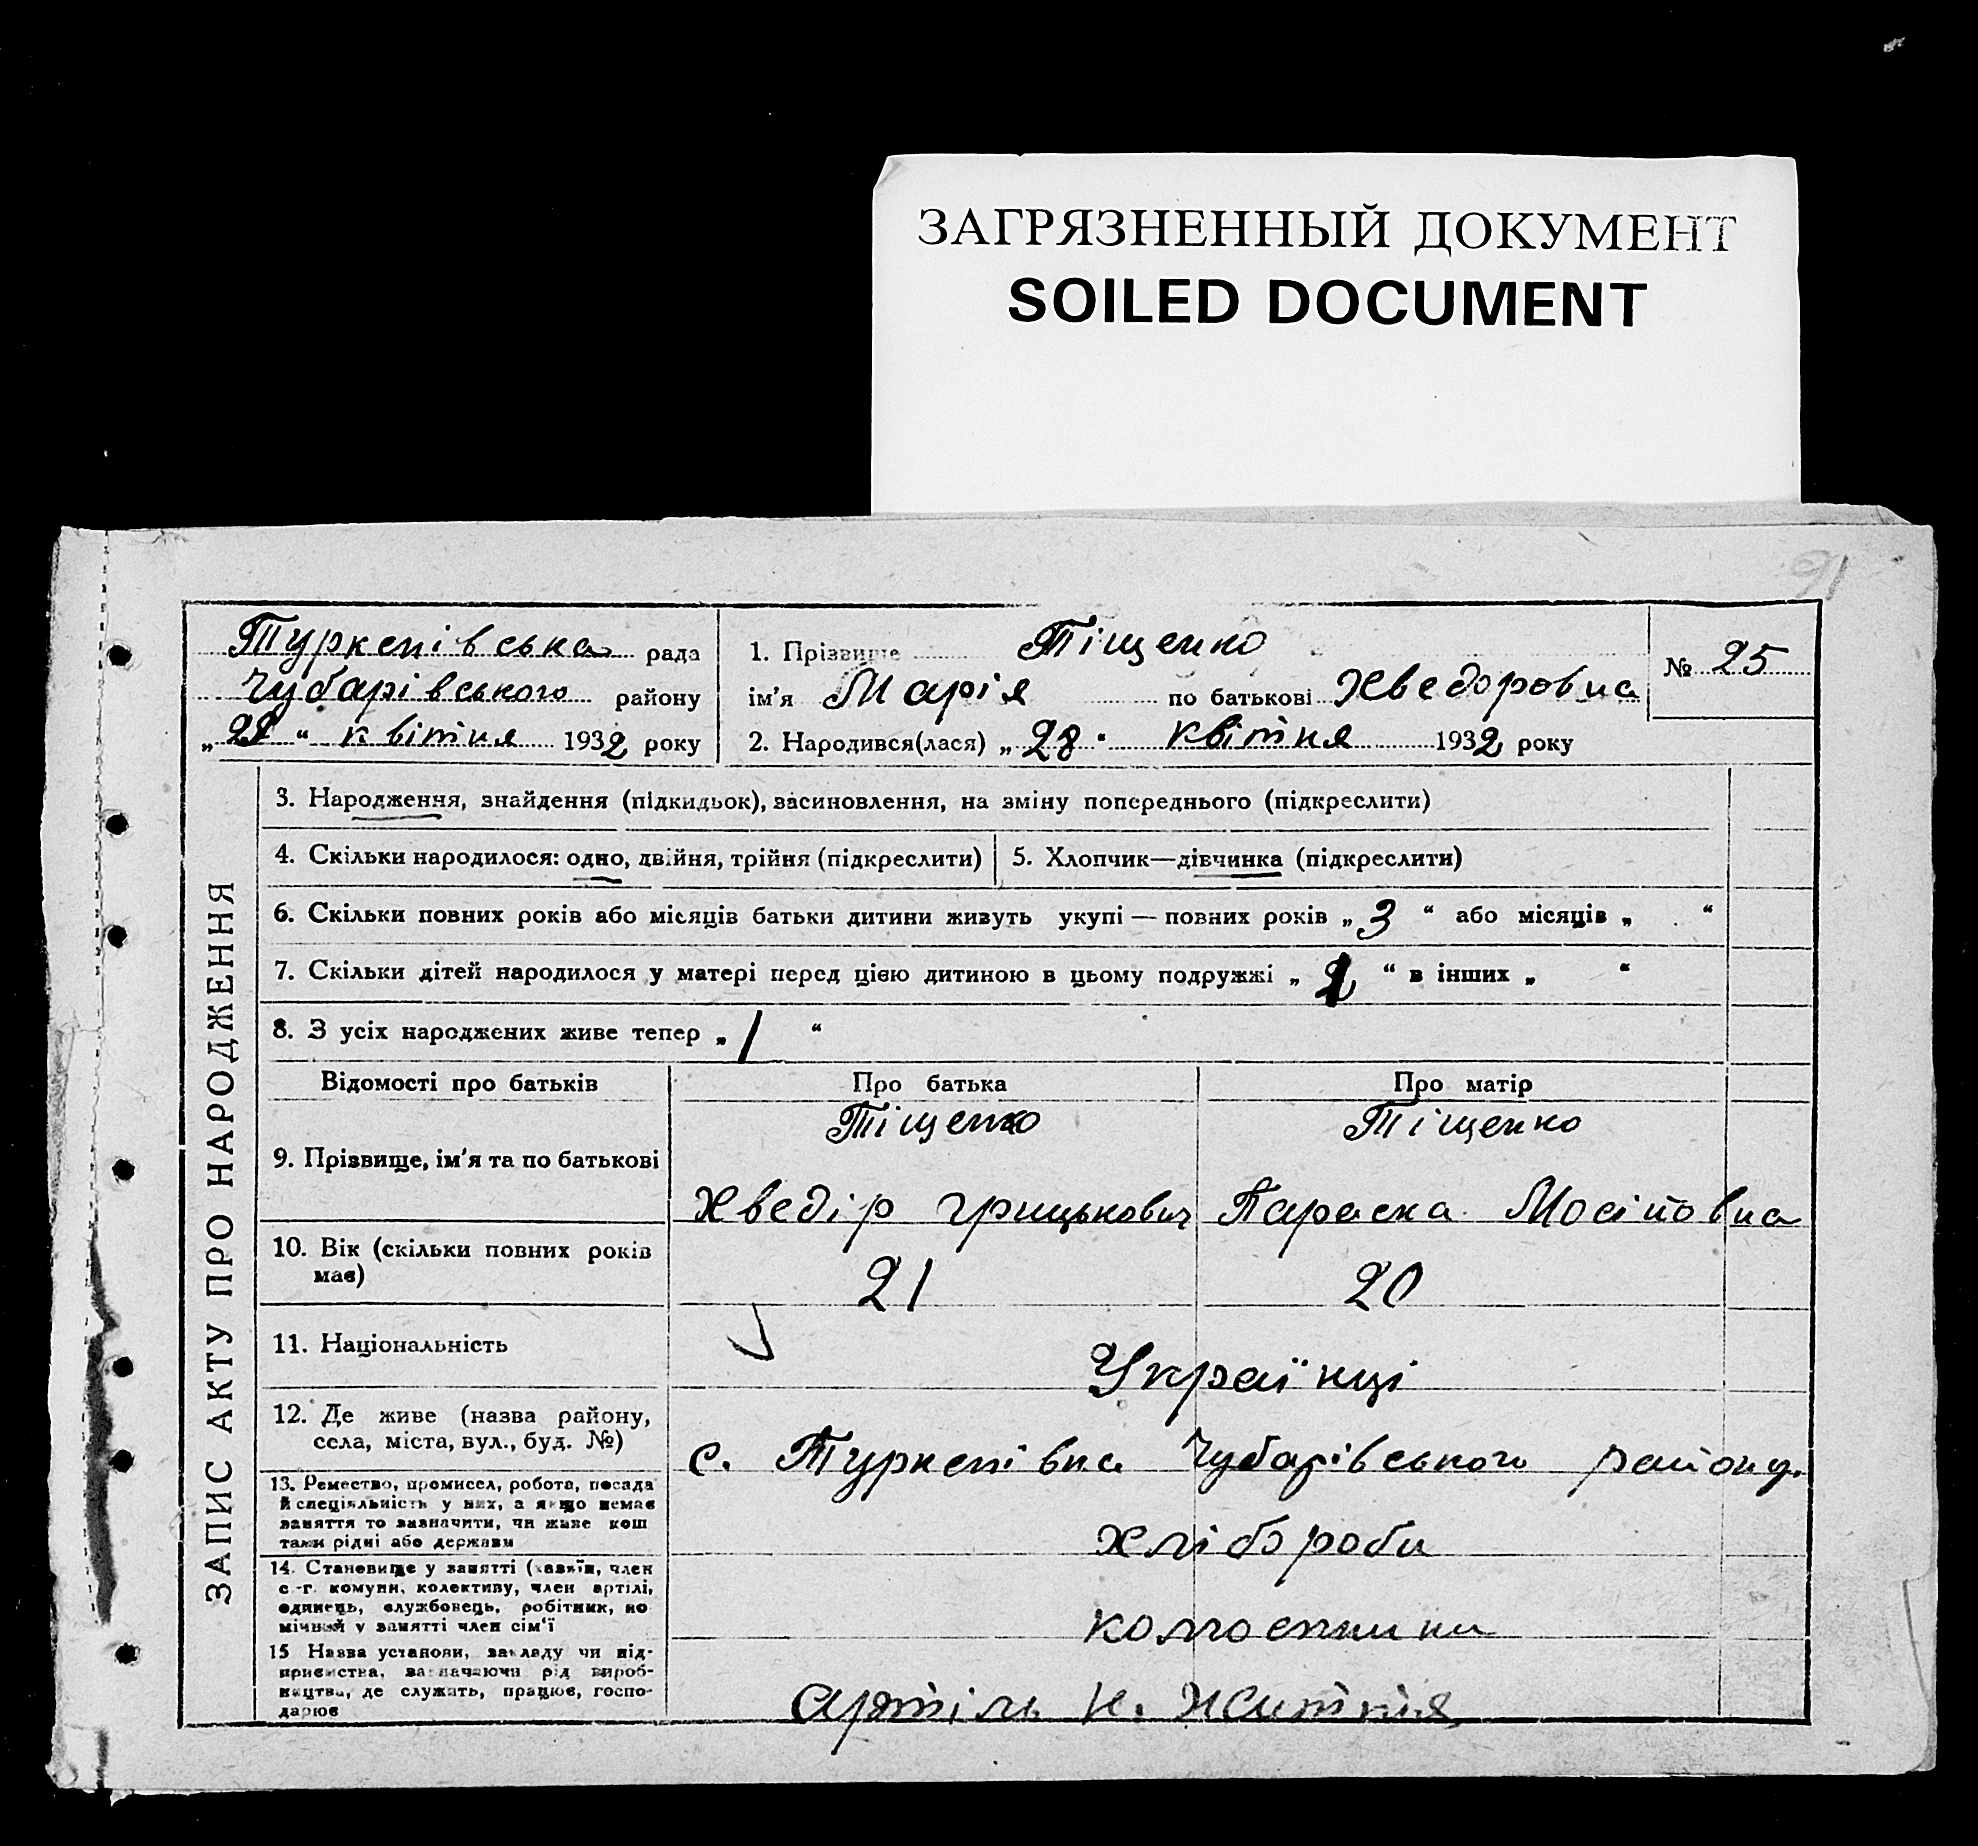 ЗАГРЯЗНЕННЫЙ ДОКУМЕНТ
SOILED DOCUMENT
91
Туркенівська рада
Чубарівського району
„28“ квітня 1932 року
1. Прізвище Тіщенко
ім'я Марія по батькові Хведоровна
2. Народився(лася) „28“ квітня 1932 року
№ 25
ЗАПИС АКТУ ПРО НАРОДЖЕННЯ
3. Народження, знайдення (підкидьок), засиновлення, на зміну попереднього (підкреслити)
4. Скільки народилося: одно, двійня, трійня (підкреслити)
5. Хлопчик—дівчинка (підкреслити)
6. Скільки повних років або місяців батьки дитини живуть укупі — повних років „3“ або місяців „ “
7. Скільки дітей народилося у матері перед цією дитиною в цьому подружжі „ “ в інших „ “
8. З усіх народжених живе тепер „1“
Відомості про батьків
Про батька
Про матір
9. Прізвище, ім'я та по батькові
Тіщенко
Хведір Грицькович
Тіщенко
Параска Мосіповна
10. Вік (скільки повних років
має)
21
20
11. Національність
Українці
12. Де живе (назва району,
села, міста, вул., буд. №)
с. Туркенівка Чубарівського району.
13. Ремество, промисел, робота, посада
й спеціяльність у них, а якщо немає
заняття то зазначити, чи живе кош
тами рідні або держави
Хлібороби
14. Становище у занятті (хазяїн, член
с.-г. комуни, колективу, член артілі,
одинець, службовець, робітник, по
мічний у занятті член сім'ї
колгоспники
15 Назва установи, закладу чи під-
приємства, зазначаючи рід вироб-
ництва, де служить, працює, госпо-
дарює
артіль Н. Життя